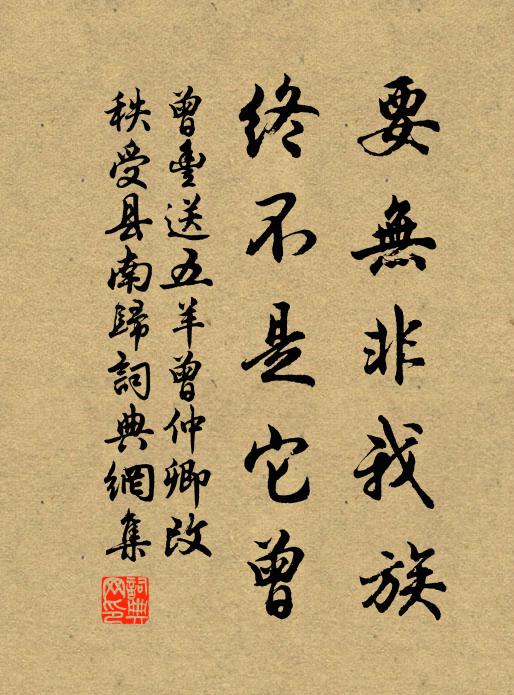 要無非我族
終不是它曾
曾豊送五羊曾仲卿改
秩受县南歸詞典網集
詞典网印